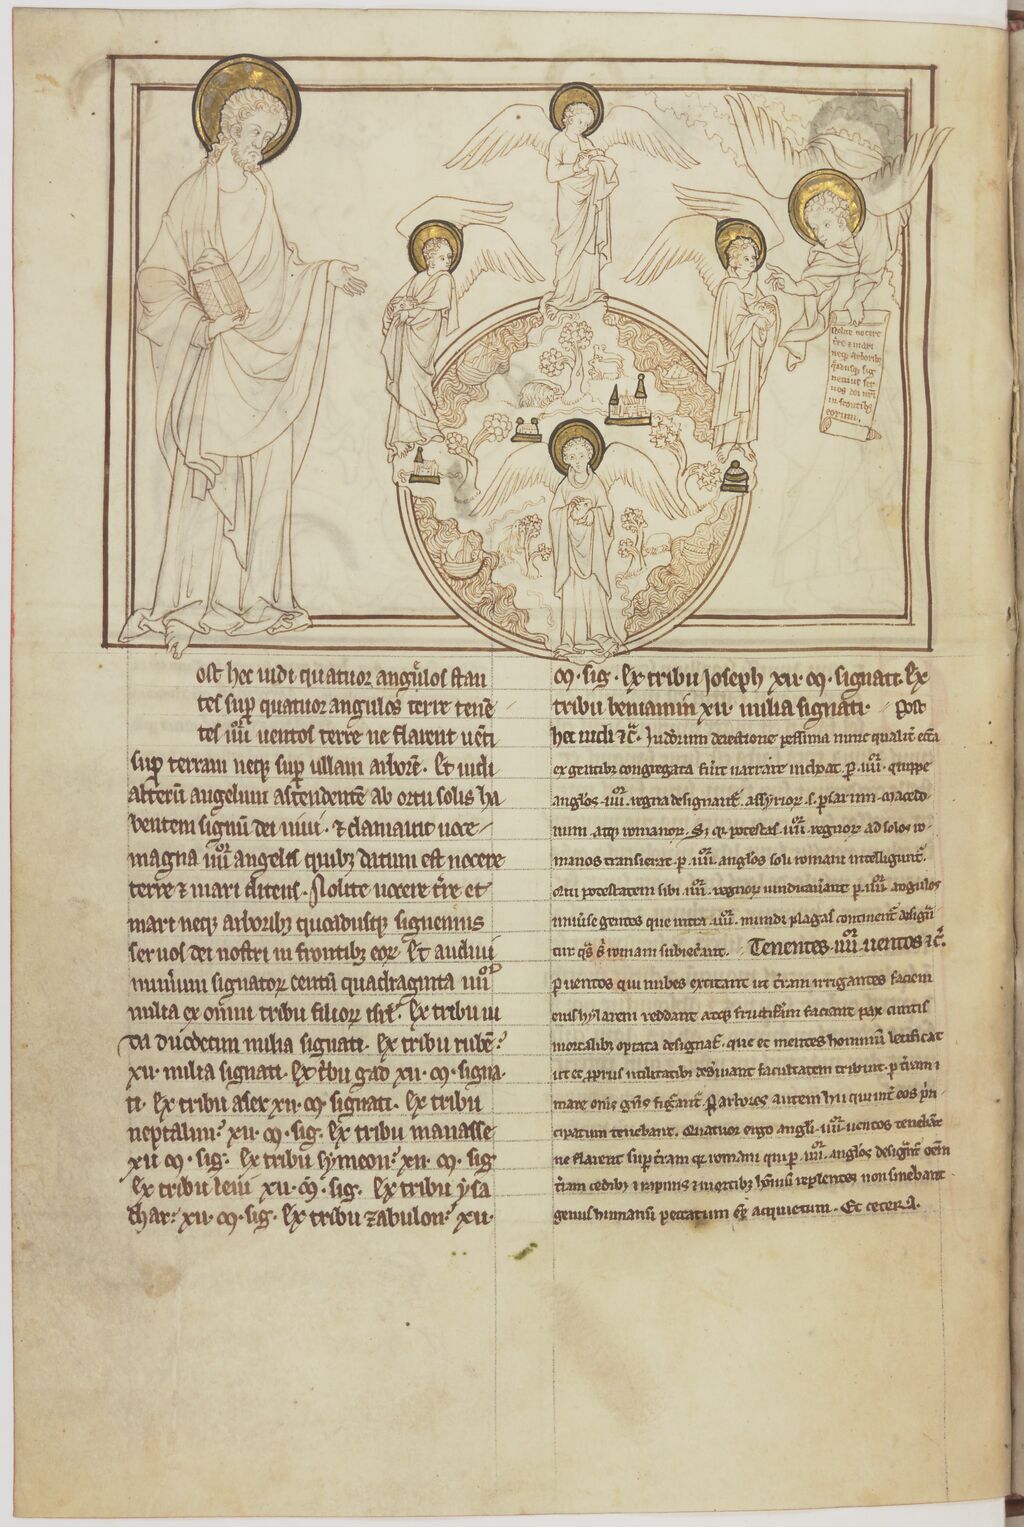 Nolite nocere
t̄re & mari
neq; arborib;
q̊adusq; sig
nemus ser
uos dei nr̄i
in frontib;
eorum.
ost hec uidi quatuor angelos stan
tes sup̱ quatuor angulos terre tenē
tes .iiii. uentos terre ne flarent uēti
sup̱ terram neq; sup̱ ullam arborē. Et uidi
alterū angelum ascendentē ab ortu solis ha
bentem signū dei uiui. & clamauit uoce
magna iiiior angelis quib; datum est nocere
terre & mari dicens. Nolite nocere t̄re et
mari neq; arborib; quoadusq; signemus
seruos dei nostri in frontib; eoꝝ. Et audiui
num̄um signatoꝝ centū quadraginta iiiior
milia ex omni tribu filioꝝ isrl̄. Ex tribu iu
da duodecim milia signati. Ex tribu rubē.
xii. milia signati. Ex t̄bu gad xii. m̄. signa
ti. Ex tribu aser xii. m̄. signati. Ex tribu
neptalim. xii. m̄. sig. Ex tribu manasse
xii m̄. sig. Ex tribu symeon. xii. m̄. sig
Ex tribu leui xii. m̄. sig. Ex tribu ysa
char. xii. m̄. sig. Ex tribu zabulon. xii.
m̄. sig. Ex tribu Joseph xii. m̄. signati. Ex
tribu beniamin xii. milia signati. Post
hec uidi &c̄. Iudeorum deiectione pessima nunc qualit̄ eccl̄a
ex gentib; congregata fu̅it narrare inchoat. ꝑ .iiii. quippe
angl̄os .iiiior. regna designant̄. assyrioꝝ .s. ꝑsarum. macedo
num. atq; romanoꝝ. Sꝫ qr̄ potestas .iiiior. regnoꝝ ad solos ro
manos transierat. ꝑ .iiiior. angl̄os soli romani intelligunt̄.
Qui potestatem sibi .iiiior. regnoꝝ uindicau̅ant. ꝑ .iiiior. angulos
uniu̅se gentes que infra .iiiior. mundi plagas continent̄ desig̅
tur q̄s s̄ romam subiec̅ant. Tenentes .iiiior. uentos &c̄.
ꝑ uentos qui nubes excitant ut t̄ram irrigantes faciem
eius hylarem reddant atq; fructif̅am faciant pax cunctis
mortalib; optata designat̄. que et mentes hominū letificat
ut et ꝓpriis utilitatib; des̅uiant facultatem tribuit. ꝑ t̄ram &
mare om̄s gn̄s figurant̄. ꝑ arbores autem hii qui int̄ eos p̄n
cipatum tenebant. Quatuor ergo angl̄i .iiiior. uentos tenebāt
ne flarent sup̱ t̄ram qr̄ romani qui ꝑ .iiiior. angl̄os designant̄ om̄em
t̄ram cedib; & rapinis & mortib; hōinū replentes non sinebant
genus humanū acquietum. Et cetera.